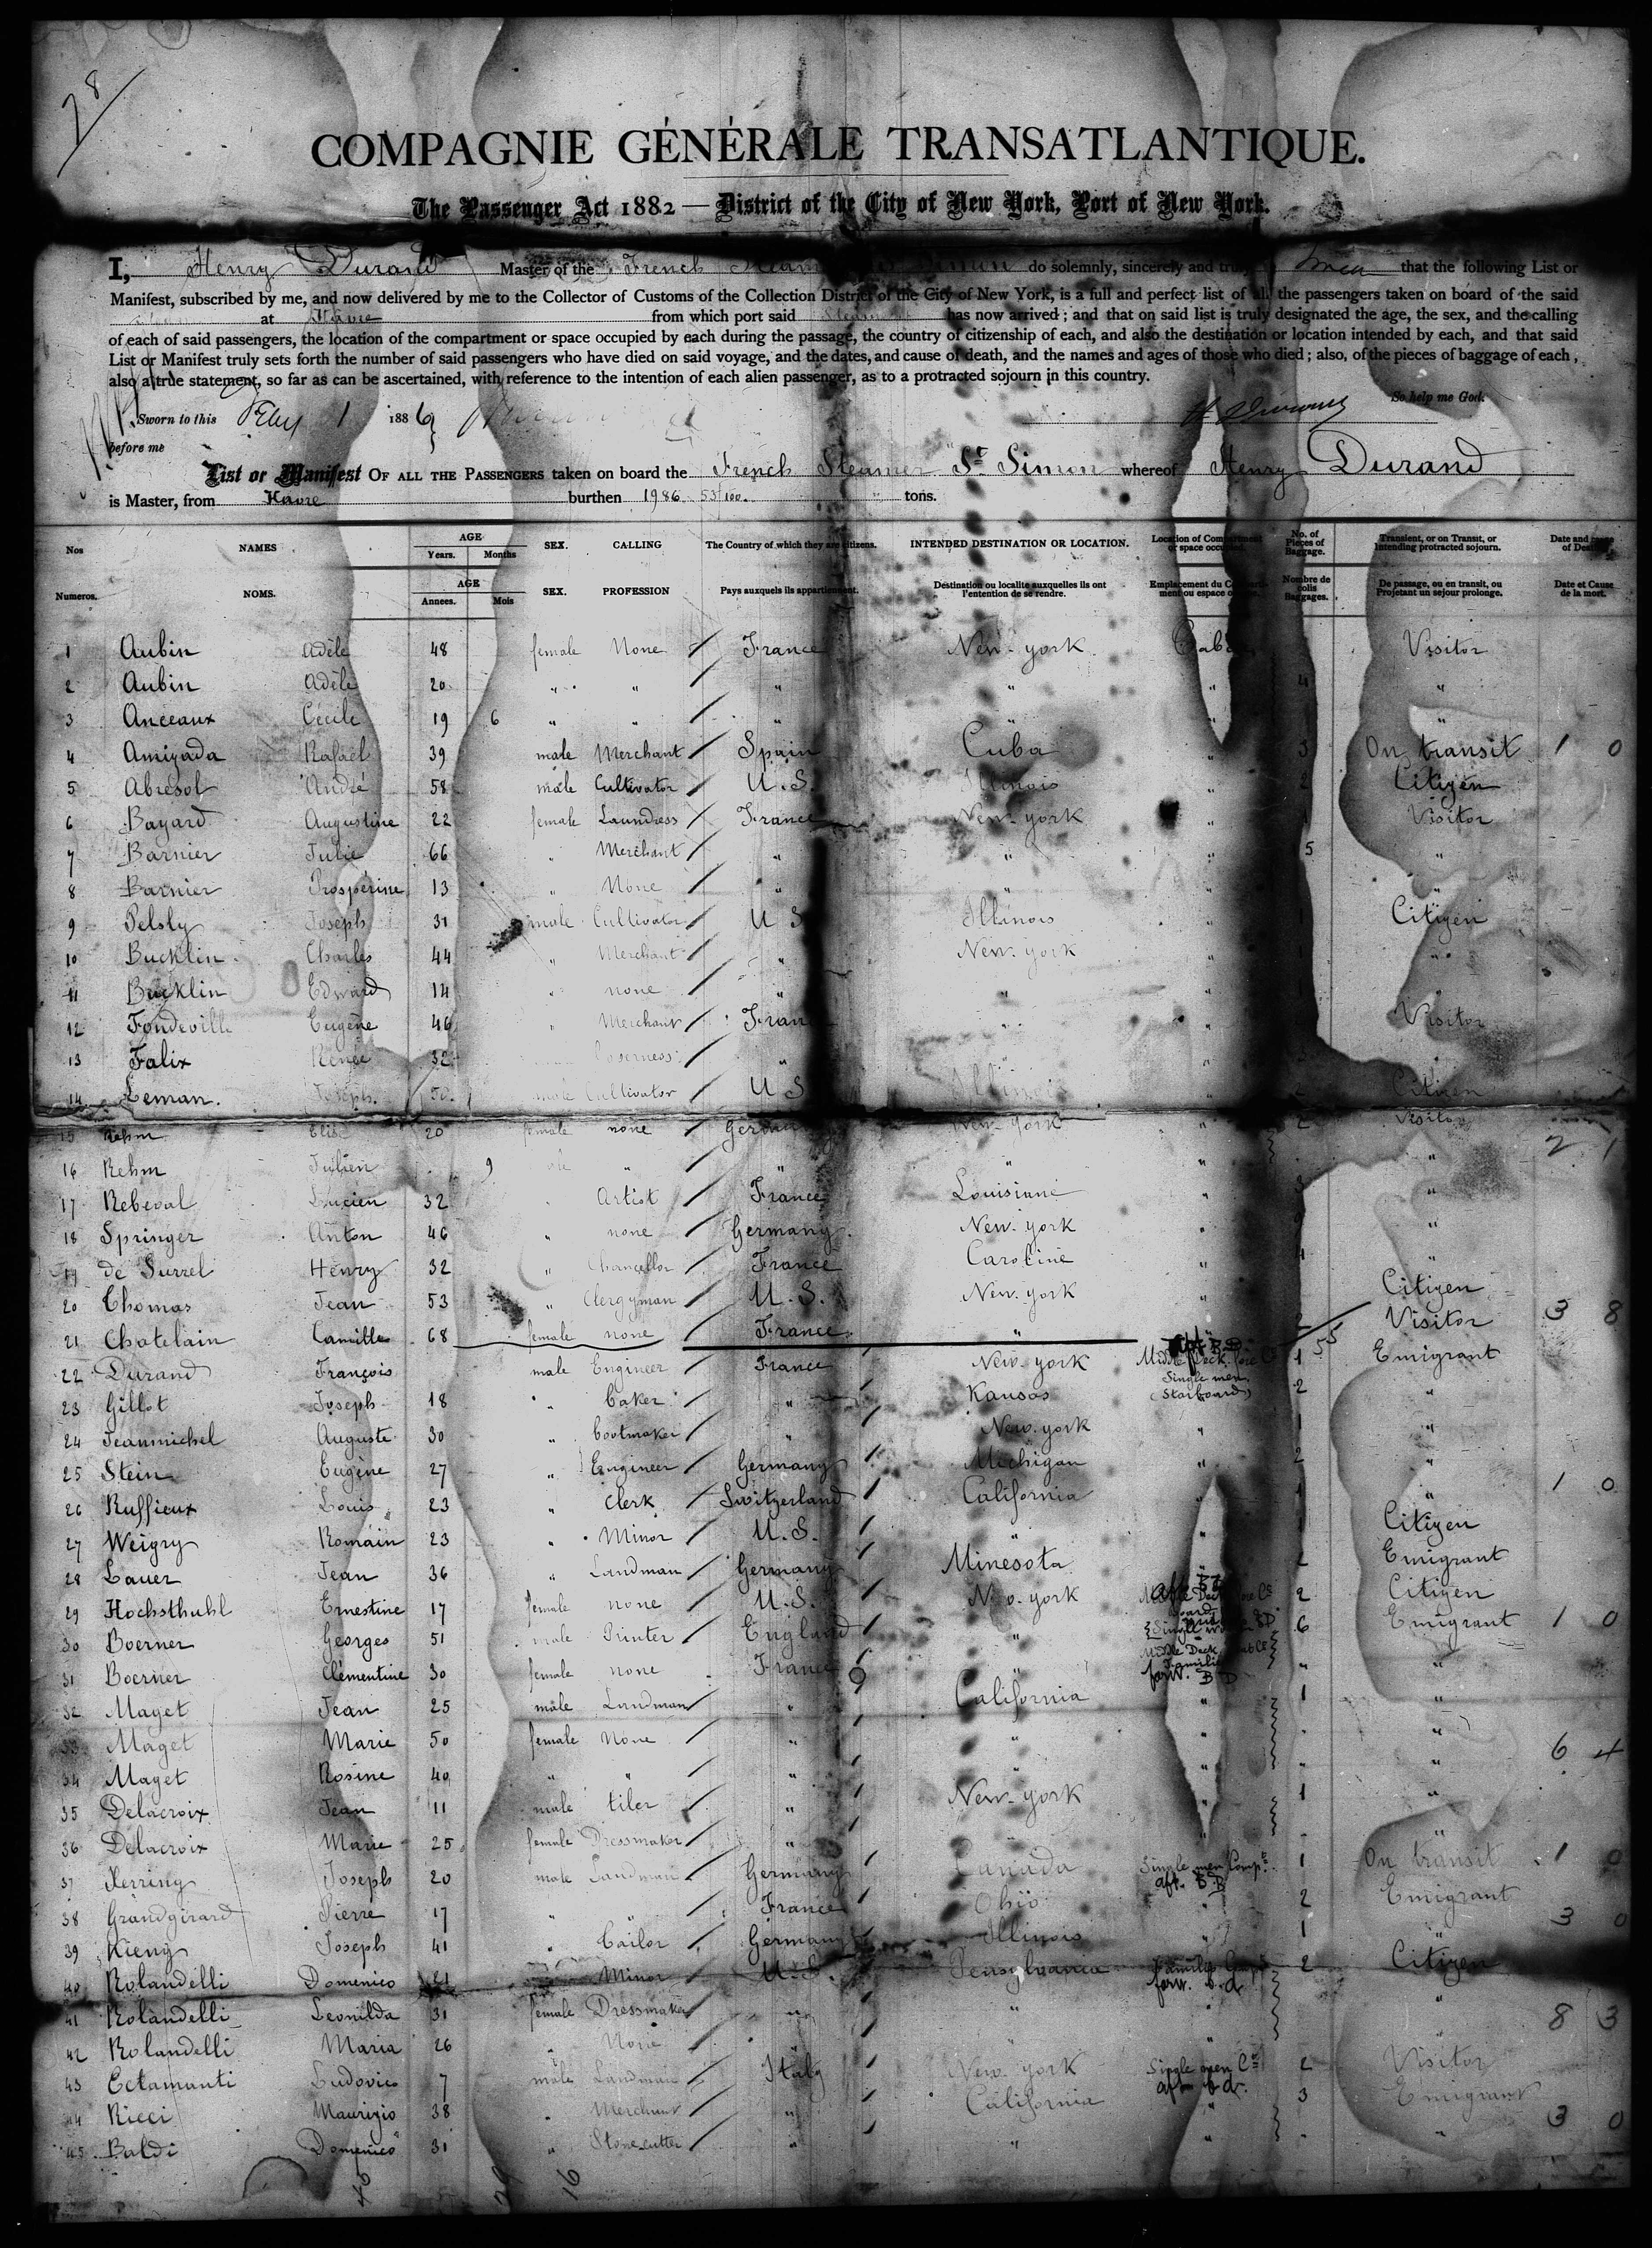 78
COMPAGNIE GÉNÉRALE TRANSATLANTIQUE.
The Passenger Act 1882 — District of the City of New York, Port of New York.
I, Henry Durand Master of the French Steam Simon do solemnly, sincerely and truly that the following List or
Manifest, subscribed by me, and now delivered by me to the Collector of Customs of the Collection District of the City of New York, is a full and perfect list of all the passengers taken on board of the said
at Havre from which port said Steam has now arrived; and that on said list is truly designated the age, the sex, and the calling
of each of said passengers, the location of the compartment or space occupied by each during the passage, the country of citizenship of each, and also the destination or location intended by each, and that said
List or Manifest truly sets forth the number of said passengers who have died on said voyage, and the dates, and cause of death, and the names and ages of those who died; also, of the pieces of baggage of each,
also a true statement, so far as can be ascertained, with reference to the intention of each alien passenger, as to a protracted sojourn in this country.
So help me God.
Sworn to this Feby 1 1886
before me
List or Manifest OF ALL THE PASSENGERS taken on board the French Steamer St Simon whereof Henry Durand
is Master, from Havre burthen 1986 53/100. tons.
Nos NAMES AGE Years. Months SEX. CALLING The Country of which they are citizens. INTENDED DESTINATION OR LOCATION. Location of Compartment or space occupied. No. of Pieces of Baggage. Transient, or on Transit, or intending protracted sojourn. Date and cause of Death
Numeros. NOMS. AGE Annees. Mois SEX. PROFESSION Pays auxquels ils appartiennent. Destination ou localite auxquelles ils ont l'entention de se rendre. Emplacement du Compartiment ou espace Nombre de colis Baggages. De passage, ou en transit, ou Projetant un sejour prolonge. Date et Cause de la mort.
1 Aubin Adèle 48 female None France New-york Cab Visitor
2 Aubin Adèle 20 " " " " " 4 "
3 Anceaux Cécile 19 6 " " " " " "
4 Amigada Rafael 39 male Merchant Spain Cuba " 3 On transit 1 0
5 Abresol André 58 male Cultivator U.S. Illinois " 2 Citizen
6 Bayard Augustine 22 female Laundress France New-york " 1 Visitor
7 Barnier Julie 66 " Merchant " " " 5 "
8 Barnier Prospérine 13 " None " " " "
9 Pelsly Joseph 31 male Cultivator U S Illinois " 1 Citizen
10 Bucklin Charles 44 " Merchant " New-york " 1 "
11 Bucklin Edward 14 " none " " "
12 Fondeville Eugène 46 " Merchant France " " Visitor
13 Falix Renée 32 " " "
14 Leman. Joseph. 50. male Cultivator U S Illinois " 2 Citizen
15 Rehm Elise 20 female none Germany New-york " 2 Visitor
16 Rehm Julien 9 " " " " " 2 1
17 Rebeval Lucien 32 Artist France Louisiane " 3 "
18 Springer Anton 46 " none Germany New-york " "
19 de Surrel Henry 32 " Chancellor France Caroline " 4 "
20 Thomas Jean 53 " Clergyman U.S. New-york " Citizen
21 Chatelain Camille 68 female none France " 2 55 Visitor 3 8
22 Durand François male Engineer France New-york Middle Deck fore Ct Single men (Starboard) 1 Emigrant
23 Gillot Joseph 18 " baker " Kansas 2 "
24 Jeanmichel Auguste 30 " bootmaker " New-york " 1 "
25 Stein Eugène 27 " Engineer Germany Michigan 2 "
26 Ruffieux Louis 23 " Clerk Switzerland California " 1 " 1 0
27 Weigry Romain 23 " Minor U.S. " " 1 Citizen
28 Lauer Jean 36 " Landman Germany Minesota " 2 Emigrant
29 Hochsthuhl Ernestine 17 female none U.S. New-york 2 Citizen
30 Boerner Georges 51 male Printer England " 6 Emigrant 1 0
31 Boerner Clémentine 30 female none France Middle Deck Families forw. B D " "
32 Maget Jean 25 male Landman " California " 1 "
33 Maget Marie 50 female None " " " " "
34 Maget Rosine 40 " " " " " " 6 4
35 Delacroix Jean 11 male tiler " New-york " 1 "
36 Delacroix Marie 25 female Dressmaker " " "
37 Kerriny Joseph 20 male Landman Germany Canada Single men Compt. aft. B.B 1 On transit 1 0
38 Grandgirard Pierre 17 " " France Ohio " 2 Emigrant
39 Kieny Joseph 41 " tailor Germany Illinois " 1 " 3 0
40 Rolandelli Domenico 21 " Minor U.S. Pensylvania Families Compt forw. b.d. 2 Citizen
41 Rolandelli Leonilda 31 female Dressmaker " " " " 8 3
42 Rolandelli Maria 26 " None " " "
43 Ectamanti Ludovico 7 male Landman Italy New-york Single men Ct aft b d. 2 Visitor
44 Ricci Maurizio 38 " Merchant " California " 3 Emigrant
45 Baldi Domenico 31 " Stone cutter " " " " 3 0
16